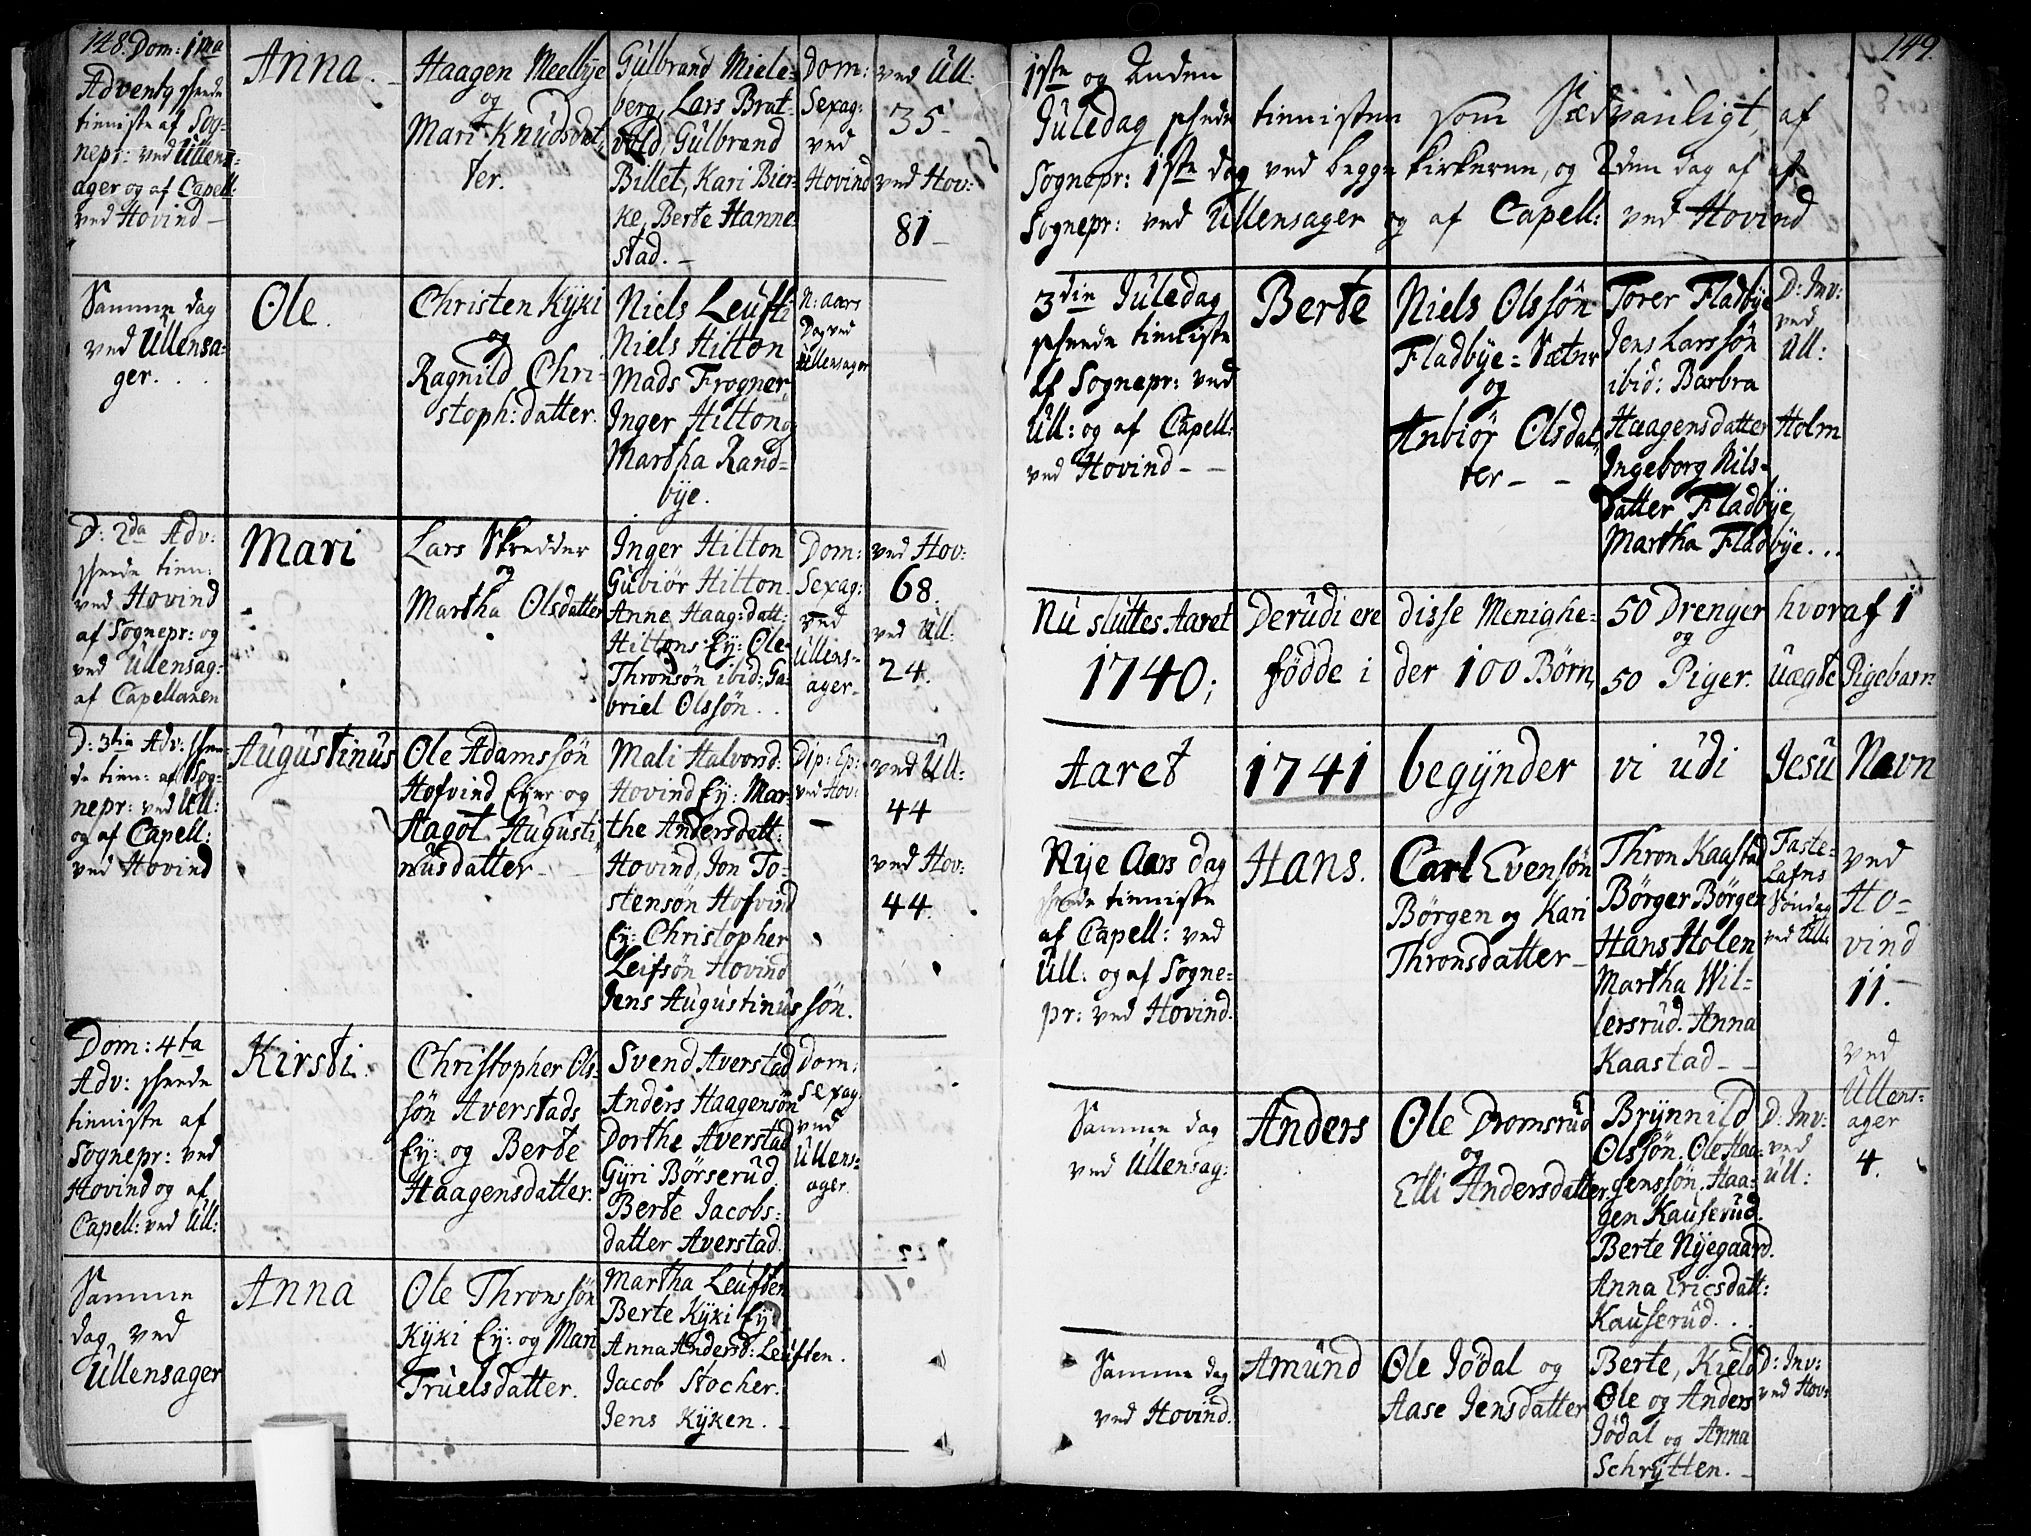 148. Dom: 1ma
Adventq skeede
tienniste af Sog-
nepr: ved Ullens-
ager og af Capell:
ved Hovind -
Anna. -
Haagen Meelbye
og
Mari Knudsdat,
ter.
Gulbrand Miele-
berg, Lars Brat-
vold, Gulbrand
Billet, Kari Bier-
ke, Berte Hanne
stad. -
Dom:
Sexag:
ved
Hovind
ved Ull:
35 -
ved Hov:
81 -
Samme dag
ved Ullensa-
ger. . .
Ole.
Christen Kyxi
og
Ragnild Chri-
stoph: datter.
Niels Leufti
Niels Hilton
Mads Frogner,
Inger Hilton og
Martha Rand-
bye.
N: aars
Dag ved
Ullensager
D: 2da Adv:
skeede tien:
ved Hovind
af Sognepr: og
ved Ullensag:
af Capellanen
Mari
Lars Skredder
og
Martha Olsdatter
Inger Hilton
Gubiør Hilton
Anne Haag: datt:
Hiltons Ey: Ole
Thronsøn ibid: Ga-
briel Olssøn. .
Dom:
Sexag:
ved
Ullens-
ager -
ved Hov:
68.
ved Ull:
24.
D: 3tia Adv: skee-
de tien: af Sog-
nepr: ved Ull:
og af Capell:
ved Hovind
Augustinus
Ole Adamssøn
Hofvind Eyer og
Hagot Augusti,
nusdatter -
Mali Halvord:
Hovind Ey: Mar-
the Andersdatt:
Hovind, Jon To-
stensøn Hofvind
Ey: Christopher
Leifsøn Hovind
Jens Augustinussøn.
Dip: Ep:
ved Hov:
-
ved Ull:
44
ved Hov:
44.
Dom: 4ta
Adv: skeede
tienniste af
Sognepr: ved
Hovind og af
Capell: ved Ull:
Kirsti.
Christopher Ols-
søn Averstads
Ey: og Berte
Haagensdatter.
Svend Averstad
Anders Haagensøn
Dorthe Averstad
Gyri Børserud.
Berte Jacobs-
datter Averstad.
Dom:
Sexag
ved
Ullens-
ager.
Samme
dag ved
Ullensager
Anna
Ole Thronssøn
Kyxi Ey: og Mari
Truelsdatter.
Martha Leuften
Berte Kyxi Ey:
Anna Andersd: Leuften.
Jacob Stocher.
Jens Kyxen. -
149.
1ste og Anden
Juledag skeede tiennisten som Sædvanligt, af
Sognepr: 1ste dag ved begge kirkerne, og 2den dag af af
Sognepr: ved Ullensager og af Capell: ved Hovind
3die Juledag
skeede tienniste
af Sognepr: ved
Ull: og af Capell:
ved Hovind - -
Berte
Niels Olssøn
Fladbye = Sætner
og
Anbiør Olsdat,
ter - -
Torer Fladbye
Jens Larssøn
ibid: Barbra
Haagensdatter Holm
Ingeborg Nils-
datter Fladbye,
Martha Fladbye. . .
D: Inv:
ved
Ull:
Nu sluttes Aaret Derudi ere disse Menighe- 50 Drenger hvoraf 1
og
1740; fødde i der 100 Børn, 50 Piger. uægte Pigebarn
Aaret 1741 begynder vi udi Jesu Navn
Nye Aars dag
skeede tienniste
af Capell: ved
Ull: og af Sogne-
pr: ved Hovind.
Hans.
Carl Evensøn
Børgen og Kari
Thronsdatter -
Thron Kaastad
Børger Børgen
Hans Holen
Martha Wil-
lersrud. Anna
Kaastad - -
Faste-
Lafns
Søndag
ved Ull:
ved
Ho-
vind
11. -
ved
Ullens-
ager
4.
Samme dag
ved Ullensag:
Anders
Ole Dromsrud
og
Elli Andersdatter.
Brynnild
Olssøn. Ole Haa-
genssøn. Haa-
gen Kauserud.
Berte Nyegaard.
Anna Ericsdatt:
Kauserud. . .
D: Inv:
ved
Ull:
Samme dag
ved Hovind.
Amund
Ole Jødal og
Aase Jensdatter
Berte, Kield
Ole og Anders
Jødal og Anna
Schrytten. -
D: Inv:
ved Hov: